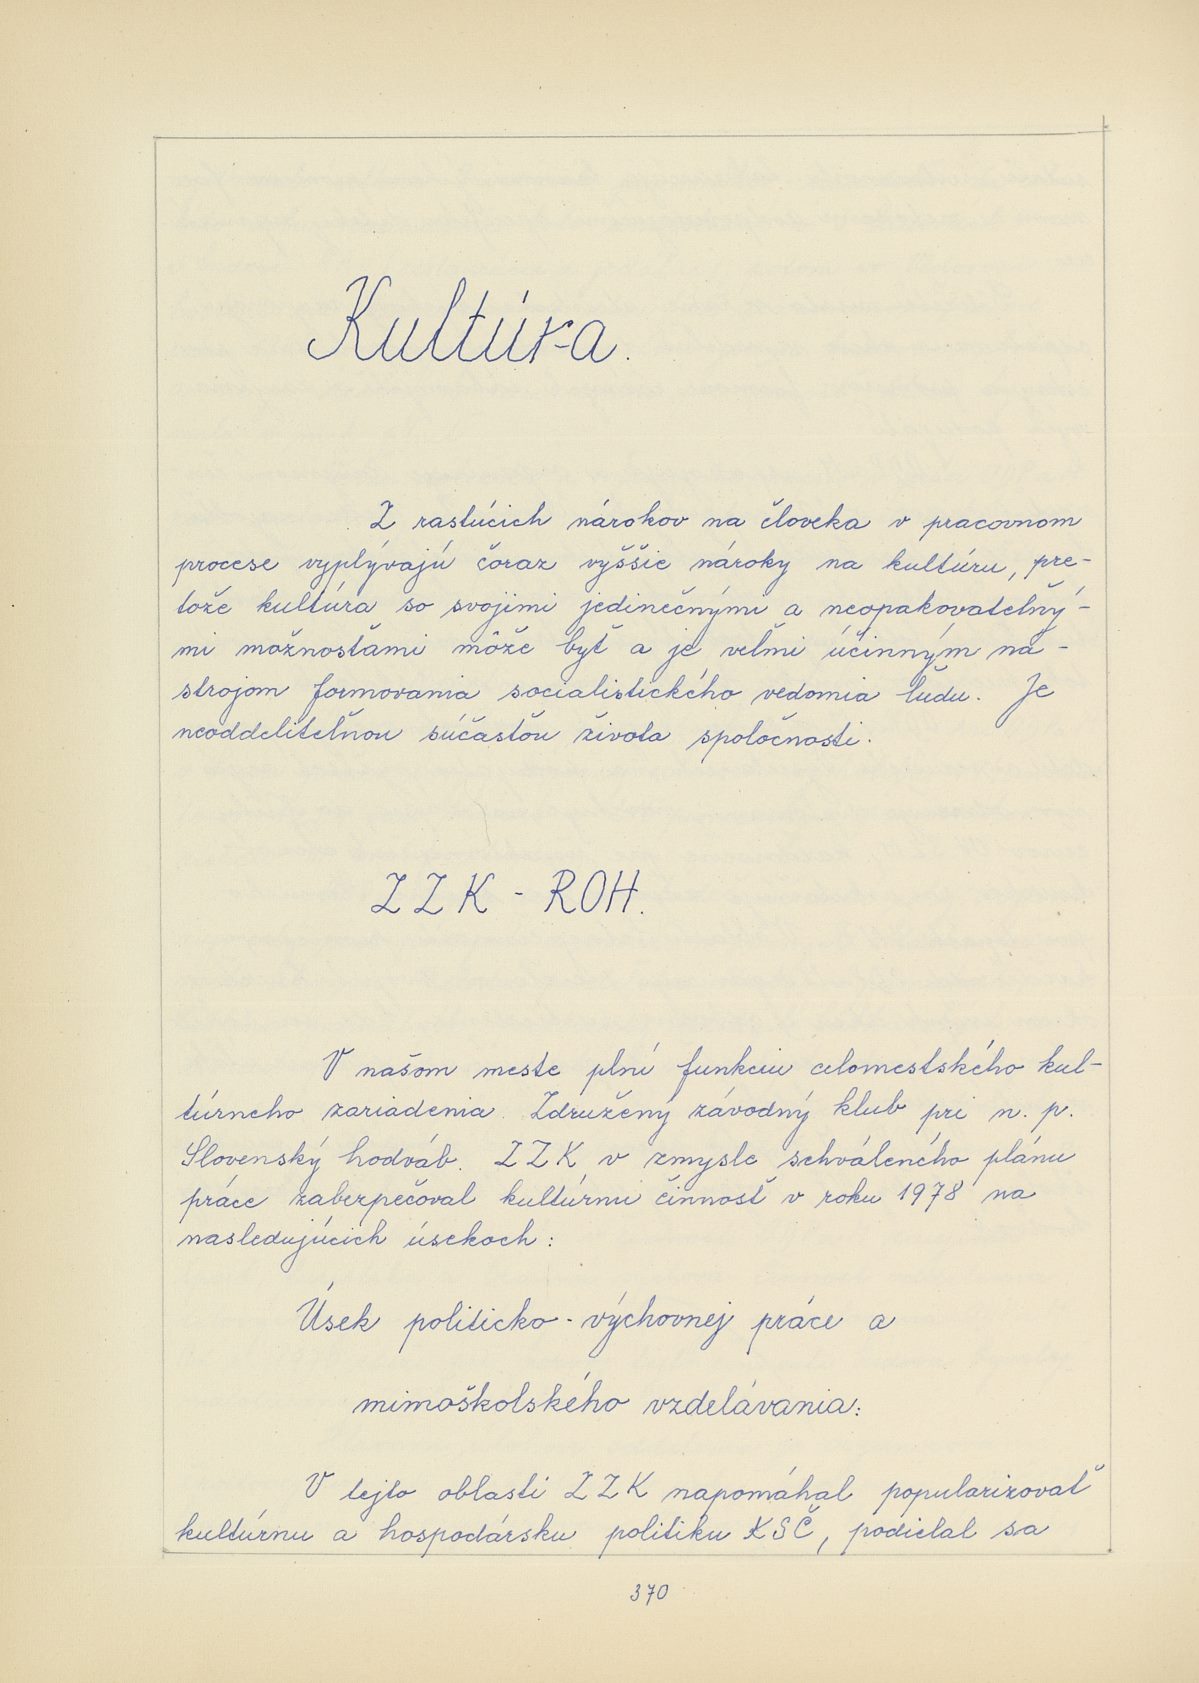 Kultúra.
Z rastúcich nárokov na človeka v pracovnom
procese vyplývajú čoraz vyššie nároky na kultúru, pre-
tože kultúra so svojimi jedinečnými a neopakovateľný-
mi možnosťami môže byť a je veľmi účinným ná-
strojom formovania socialistického vedomia ľudu. Je
neoddeliteľnou súčasťou života spoločnosti.
ZZK - ROH.
V našom meste plní funkciu celomestského kul-
túrneho zariadenia Združený závodný klub pri n. p.
Slovenský hodváb. ZZK v zmysle schváleného plánu
práce zabezpečoval kultúrnu činnosť v roku 1978 na
nasledujúcich úsekoch:
Úsek politicko - výchovnej práce a
mimoškolského vzdelávania:
V tejto oblasti ZZK napomáhal popularizovať
kultúrnu a hospodársku politiku KSČ, podielal sa
370